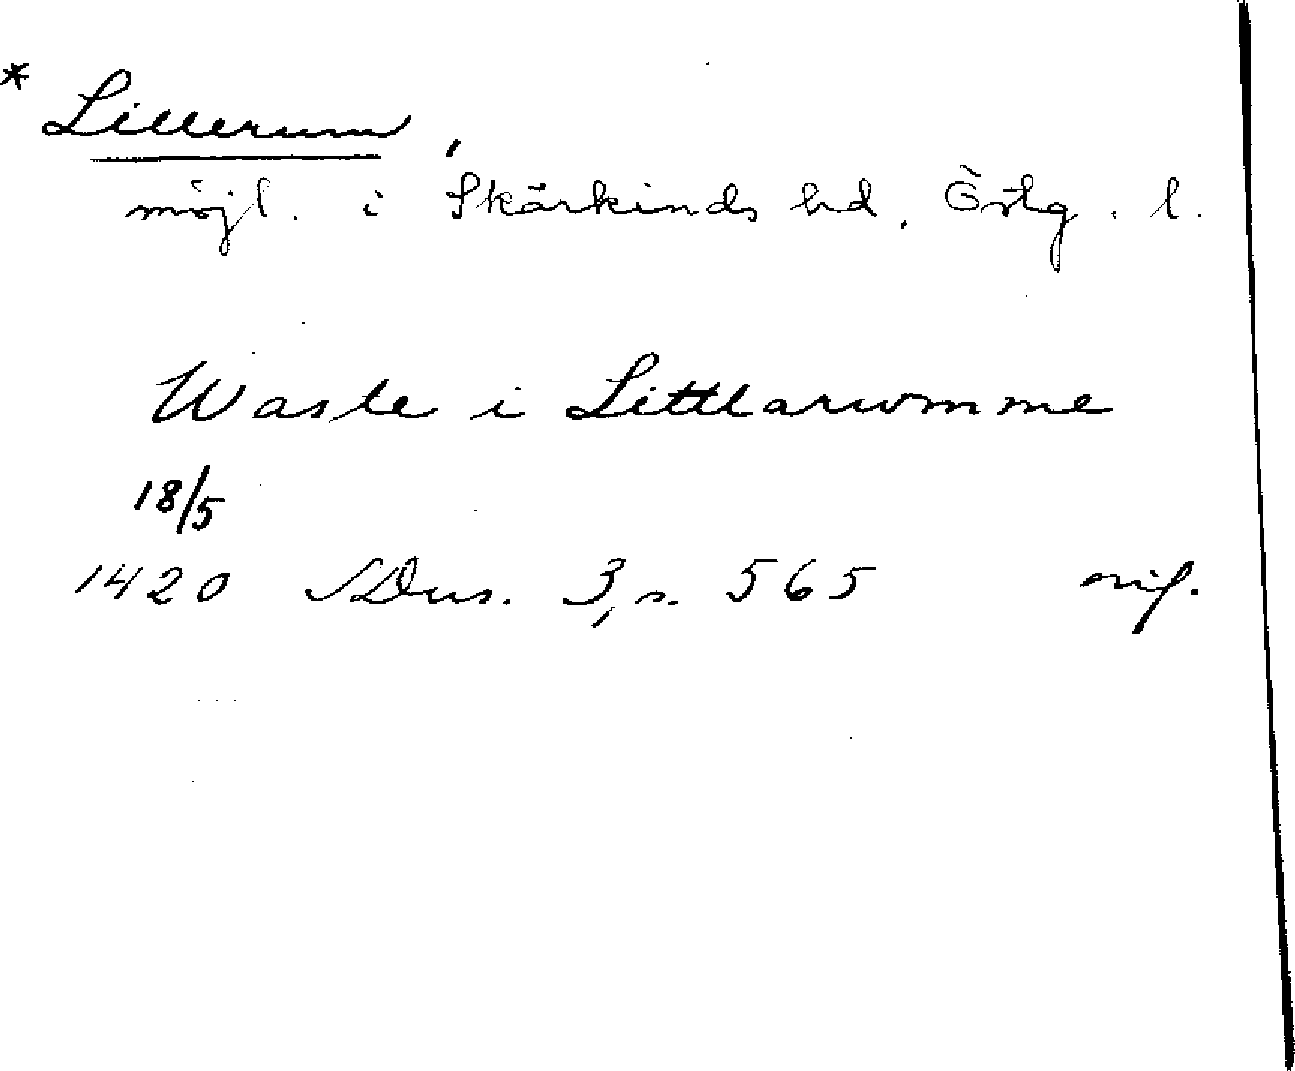 * Lillerum,
möjl. i Skärkinds hd. Östg. l.
Wasle i Littlarwmme
18/5
1420 SDns. 3, s. 565 orig.